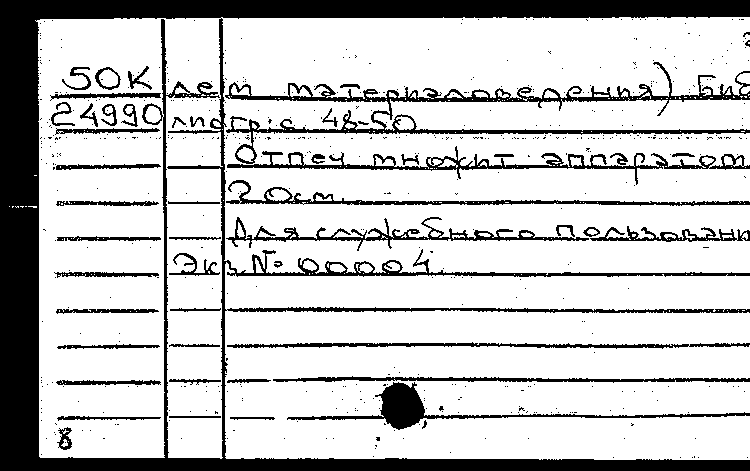 50К лем материаловедения). Биб
24990 лиогр: с. 48-50
Отпеч. множит. аппаратом
20 см.
Для служебного пользовани
Экз. № 00004.
8